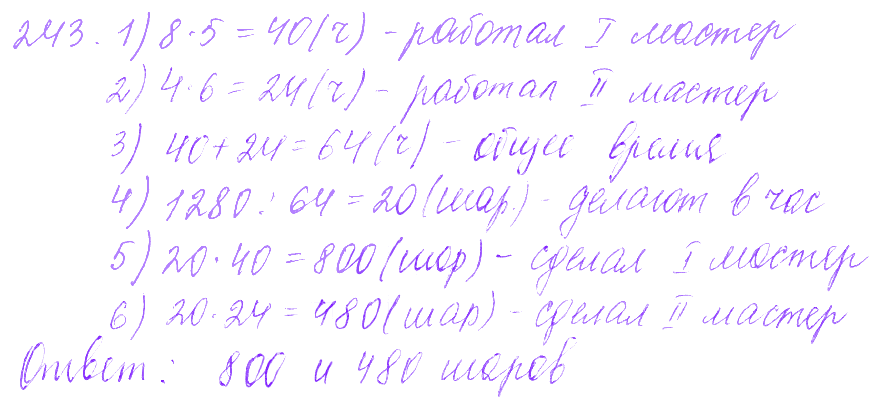 243. 1) 8·5=40(ч) - работал I мастер
2) 4·6=24(ч) - работал II мастер
3) 40+24=64(ч) - общее время
4) 1280:64=20(шар.) - делают в час
5) 20·40=800(шар) - сделал I мастер
6) 20·24=480(шар) - сделал II мастер
Ответ: 800 и 480 шаров